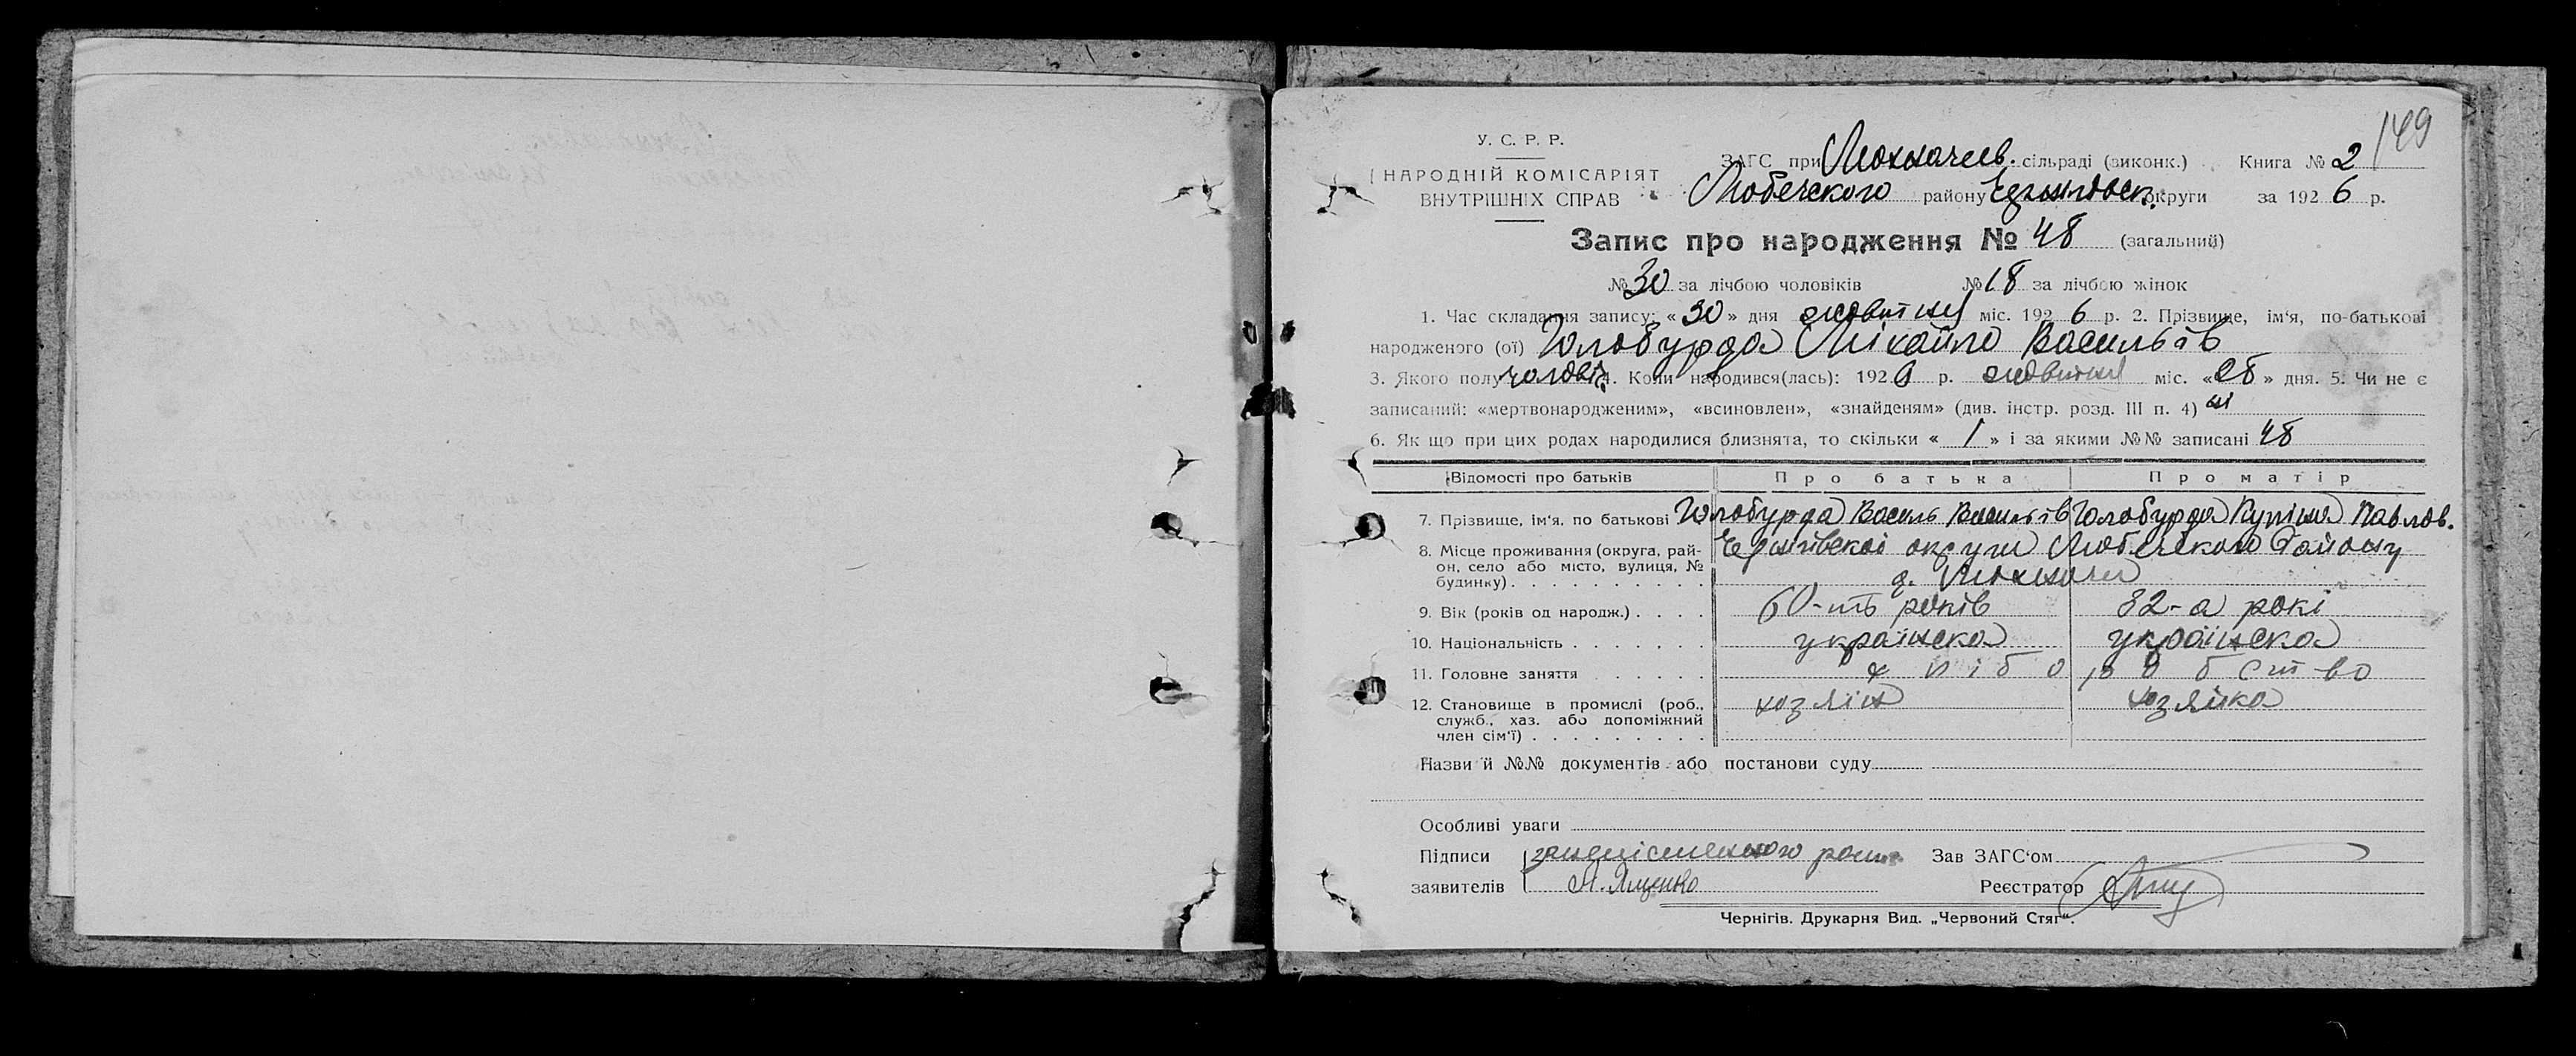 149
У. С. Р. Р.
НАРОДНІЙ КОМІСАРІЯТ
ВНУТРІШНІХ СПРАВ
ЗАГС при сільраді (виконк.) Книга № 2
Любечского району округи за 1926 р.
Запис про народження № 48 (загальний)
№ 30 за лічбою чоловіків № 18 за лічбою жінок
1. Час складання запису: «30» дня жовтня міс. 1926 р. 2. Прізвище, ім'я, по-батькові
народженого (ої) Голобурда Міхайло Васильів
3. Якого полу 4. Коли народився(лась): 1926 р. жовтня міс. «28» дня. 5. Чи не є
записаний: «мертвонародженим», «всиновлен», «знайденям» (див. інстр. розд. III п. 4) ні
6. Як що при цих родах народилися близнята, то скільки «1» і за якими №№ записані 48
Відомості про батьків Про батька Про матір
7. Прізвище, ім'я, по батькові Голобурда Василь Васильів Голобурда Павлов.
8. Місце проживання (округа, рай-
он, село або місто, вулиця, №
будинку)
Чернігівскоі округи Любечского Району
9. Вік (років од народж.) 60-ть років 32-а рокі
10. Національність украінска украінска
11. Головне заняття хлібо робство
12. Становище в промислі (роб.,
служб., хаз. або допоміжний
член сім'ї)
хозяін хозяйка
Назви й №№ документів або постанови суду
Особливі уваги
Підписи Зав ЗАГС'ом
заявителів Ященко Реєстратор
Чернігів. Друкарня Вид. „Червоний Стяг".